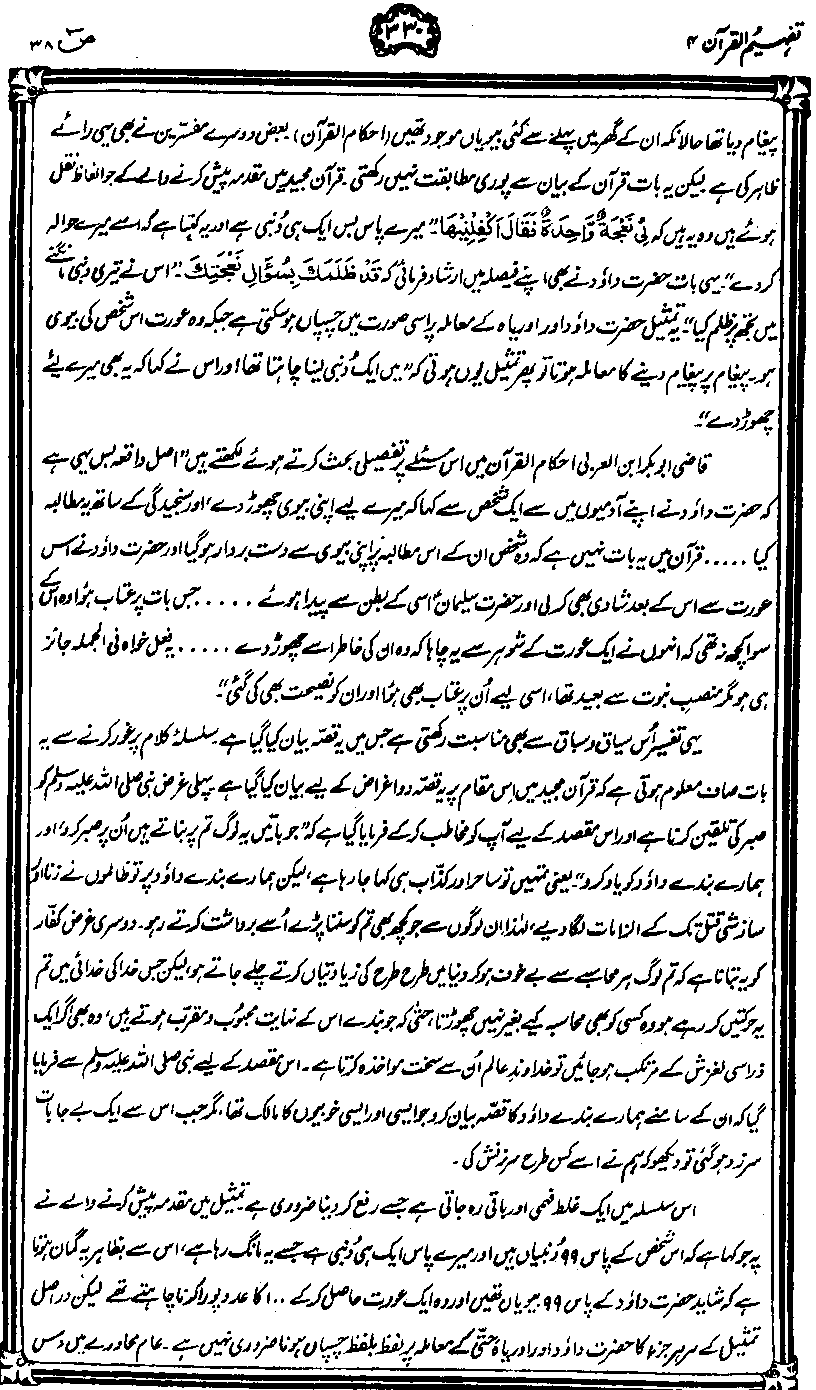 تفہیم القرآن ۴
۳۳۰
صٓ ۳۸
پیغام دیا تھا حالانکہ ان کے گھر میں پہلے سے کئی بیویاں موجود تھیں (احکام القرآن) بعض دوسرے مفسّرین نے بھی یہی رائے
ظاہر کی ہے لیکن یہ بات قرآن کے بیان سے پوری مطابقت نہیں رکھتی۔ قرآن مجید میں مقدمہ پیش کرنے والے کے جو الفاظ نقل
ہوئے ہیں وہ یہ ہیں کہ لِیَ نَعْجَةٌ وَّاحِدَةٌ فَقَالَ اَكْفِلْنِيْهَا۔ "میرے پاس بس ایک ہی دُنبی ہے اور یہ کہتا ہے کہ اسے میرے حوالہ
کر دے"۔ یہی بات حضرت داؤد نے بھی اپنے فیصلہ میں ارشاد فرمائی کہ قَدْ ظَلَمَكَ بِسُؤَالِ نَعْجَتِكَ۔ "اس نے تیری دنبی مانگنے
میں تجھ پر ظلم کیا"۔ یہ تمثیل حضرت داؤد اور اوریاہ کے معاملہ پر اسی صورت میں چسپاں ہو سکتی ہے جبکہ وہ عورت اس شخص کی بیوی
ہو۔ پیغام پر پیغام دینے کا معاملہ ہوتا تو پھر تمثیل یوں ہوتی کہ "میں ایک دُنبی لینا چاہتا تھا اور اس نے کہا کہ یہ بھی میرے لیے
چھوڑ دے"۔
قاضی ابوبکر ابن العربی احکام القرآن میں اس مسئلے پر تفصیلی بحث کرتے ہوئے لکھتے ہیں "اصل واقعہ بس یہی ہے
کہ حضرت داؤد نے اپنے آدمیوں میں سے ایک شخص سے کہا کہ میرے لیے اپنی بیوی چھوڑ دے، اور سنجیدگی کے ساتھ یہ مطالبہ
کیا ..... قرآن میں یہ بات نہیں ہے کہ وہ شخص ان کے اس مطالبہ پر اپنی بیوی سے دست بردار ہو گیا اور حضرت داؤد نے اس
عورت سے اس کے بعد شادی بھی کر لی اور حضرت سلیمانؑ اسی کے بطن سے پیدا ہوئے ..... جس بات پر عتاب ہوا وہ اس کے
سوا کچھ نہ تھی کہ انہوں نے ایک عورت کے شوہر سے یہ چاہا کہ وہ ان کی خاطر اسے چھوڑ دے ..... یہ فعل خواہ فی الجملہ جائز
ہی ہو مگر منصبِ نبوت سے بعید تھا، اسی لیے اُن پر عتاب بھی ہوا اور ان کو نصیحت بھی کی گئی"۔
یہی تفسیر اُس سیاق و سباق سے بھی مناسبت رکھتی ہے جس میں یہ قصّہ بیان کیا گیا ہے۔ سلسلۂ کلام پر غور کرنے سے یہ
بات صاف معلوم ہوتی ہے کہ قرآن مجید میں اس مقام پر یہ قصّہ دو اغراض کے لیے بیان کیا گیا ہے۔ پہلی غرض نبی صلی اللہ علیہ وسلم کو
صبر کی تلقین کرنا ہے اور اس مقصد کے لیے آپ کو مخاطب کر کے فرمایا گیا ہے کہ "جو باتیں یہ لوگ تم پر بناتے ہیں اُن پر صبر کرو، اور
ہمارے بندے داؤد کو یاد کرو"۔ یعنی تمہیں تو ساحر اور کذّاب ہی کہا جا رہا ہے، لیکن ہمارے بندے داؤد پر تو ظالموں نے زنا اور
سازشی قتل تک کے الزامات لگا دیے، لہٰذا ان لوگوں سے جو کچھ بھی تم کو سننا پڑے اُسے برداشت کرتے رہو۔ دوسری غرض کفّار
کو یہ بتانا ہے کہ تم لوگ ہر محاسبے سے بے خوف ہو کر دنیا میں طرح طرح کی زیادتیاں کرتے چلے جاتے ہو، لیکن جس خدا کی خدائی میں تم
یہ حرکتیں کر رہے ہو وہ کسی کو بھی محاسبہ کیے بغیر نہیں چھوڑتا، حتیٰ کہ جو بندے اس کے نہایت محبوب و مقرّب ہوتے ہیں، وہ بھی اگر ایک
ذرا سی لغزش کے مرتکب ہو جائیں تو خداوندِ عالم اُن سے سخت مواخذہ کرتا ہے۔ اس مقصد کے لیے نبی صلی اللہ علیہ وسلم سے فرمایا
گیا کہ ان کے سامنے ہمارے بندے داؤد کا قصّہ بیان کرو جو ایسی اور ایسی خوبیوں کا مالک تھا، مگر جب اس سے ایک بے جا بات
سرزد ہو گئی تو دیکھو کہ ہم نے اسے کس طرح سرزنش کی۔
اس سلسلہ میں ایک غلط فہمی اور باقی رہ جاتی ہے جسے رفع کر دینا ضروری ہے۔ تمثیل میں مقدمہ پیش کرنے والے نے
یہ جو کہا ہے کہ اس شخص کے پاس ۹۹ دُنبیاں ہیں اور میرے پاس ایک ہی دُنبی ہے جسے یہ مانگ رہا ہے، اس سے بظاہر یہ گمان ہوتا
ہے کہ شاید حضرت داؤد کے پاس ۹۹ بیویاں تھیں اور وہ ایک عورت حاصل کر کے ۱۰۰ کا عدد پورا کرنا چاہتے تھے۔ لیکن دراصل
تمثیل کے ہر ہر جزء کا حضرت داؤد اور اوریاہ حِتّی کے معاملہ پر لفظ بلفظ چسپاں ہونا ضروری نہیں ہے۔ عام محاورے میں دس